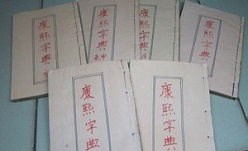 康熙字典
康熙字典
康熙字典
康熙字典
康熙字典
康熙字典